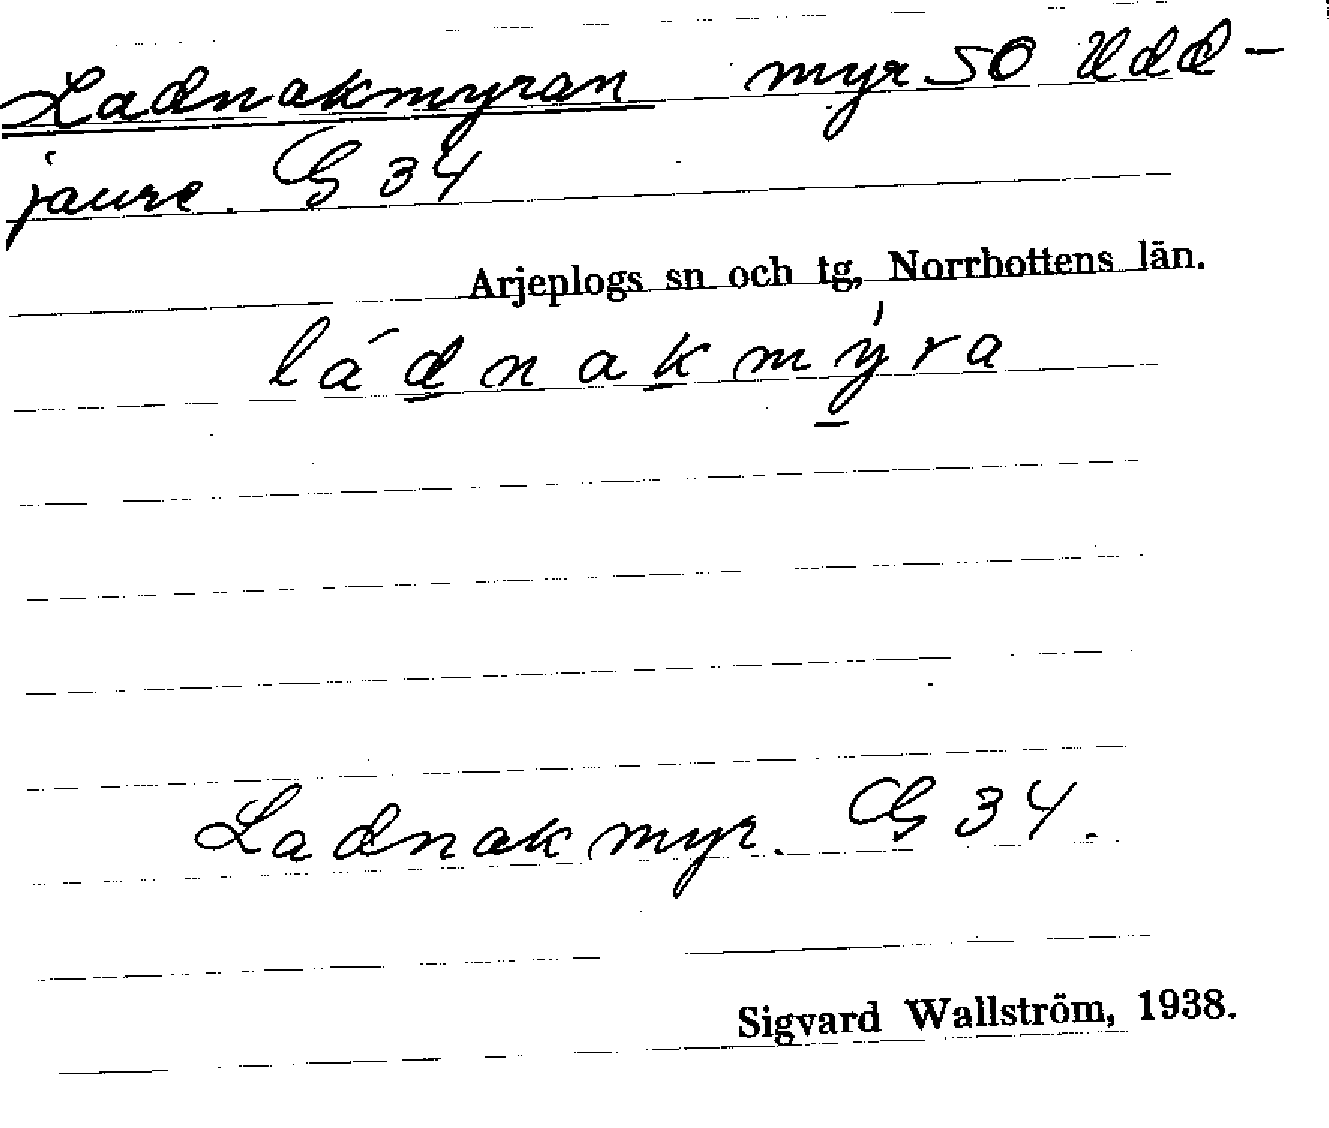 Ladnakmyran myr SO Udd-
jaure. G 34
Arjeplogs sn och tg, Norrbottens län.
ládnakmýra
Ladnakmyr. G 34.
Sigvard Wallström, 1938.